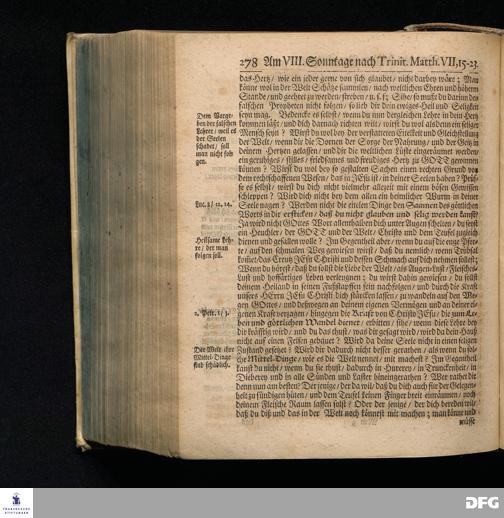 278 Am VIII. Sonntage nach Trinit. Matth. VII, 15-23.
das Hertz / wie ein jeder gerne von sich glaubet / nicht darbey wäre; Man
könne wol in der Welt Schätze sammlen / nach weltlichen Ehren und höherm
Stande / und geehret zu werden / streben / u. s. f.; Sihe / so must du darinn den
falschen Propheten nicht folgen / so lieb dir dein ewiges Heil und Seligkeit
seyn mag. Bedencke es selbst / wenn du nun dergleichen Lehre in dein Hertz
kommen läst / und dich darnach richten wilt / wirst du wol alsdenn ein seliger
Mensch seyn? Wirst du wol bey der verstatteten Eitelkeit und Gleichstellung
der Welt / wenn dir die Dornen der Sorge der Nahrung / und der Geitz in
deinem Hertzen gelassen / und dir die weltlichen Lüste eingeräumet worden /
ein geruhiges / stilles / friedsames und freudiges Hertz zu GOTT gewonnen
können? Wirst du wol bey so gestalten Sachen einen rechten Grund von
dem rechtschaffenen Wesen / das in JEsu ist / in deiner Seelen haben? Prüf-
fe es selbst / wirst du dich nicht vielmehr allezeit mit einem bösen Gewissen
schleppen? Wird dich nicht bey dem allen ein heimlicher Wurm in deiner
Seele nagen? Werden nicht die eitelen Dinge den Saamen des göttlichen
Worts in dir ersticken / daß du nicht glauben und selig werden kanst?
Ja wird nicht GOttes Wort allenthalben dich unter Augen schelten / du seyst
ein Heuchler / der GOTT und der Welt / Christo und dem Teufel zugleich
dienen und gefallen wolle? Im Gegentheil aber / wenn du auf die enge Pfor-
te / auf den schmalen Weg gewiesen wirst / daß du nemlich / wenn Trübsal
kömmt / das Creutz JEsu Christi und dessen Schmach auf dich nehmen sollest;
Wenn du hörest / daß du sollst die Liebe der Welt / als Augen-Lust / Fleisches-
lust und hoffärtiges Leben verleugnen; du würst dahin gewiesen / du sollst
deinem Heiland in seinen Fußstapffen fein nachfolgen / und durch die Kraft
unsers HErrn JEsu Christi dich stärcken lassen / zu wandeln auf den We-
gen GOttes / und deßwegen an deinem eigenen Vermögen und an deiner ei-
genen Kraft verzagen / hingegen die Kraft von Christo JEsu / die zum Le-
ben und göttlichen Wandel dienet / erbitten / sihe / wenn diese Lehre bey
dir kräftig wird / und du das thust / was dir gesagt wird / wird da dein Hauß
nicht auf einen Felsen gebauet? Wird da deine Seele nicht in einen seligen
Zustand gesetzet? Wirst dir dadurch nicht besser gerathen / als wenn du sol-
che Mittel-Dinge / wie es die Welt nennet / mit machest? Im Gegentheil
kanst du nicht / wenn du sie thust / dadurch in Hurerey / in Trunckenheit / in
Dieberey und in alle Sünden und Laster hineingerathen? Wer rathet dir
denn nun am besten? Der jenige / der da wil / daß du dich auch für der Gelegen-
heit zu sündigen hüten / und dem Teufel keinen Finger breit einräumen / noch
deinem Fleische Raum lassen sollst? Oder der jenige / der dich bereden wil /
daß du diß und das in der Welt noch könnest mit machen; man könne und
müsse
Dem Vorge-
ben der falschen
Lehrer / weil es
der Seelen
schadet / soll
man nicht fol-
gen.
Luc. 8 / 12. 14.
Heilsame Leh-
re / der man
folgen soll.
2. Petr. 1 / 3.
Der Welt ihre
Mittel-Dinge
sind schädlich.
FRANCKESCHE
STIFTUNGEN
DFG